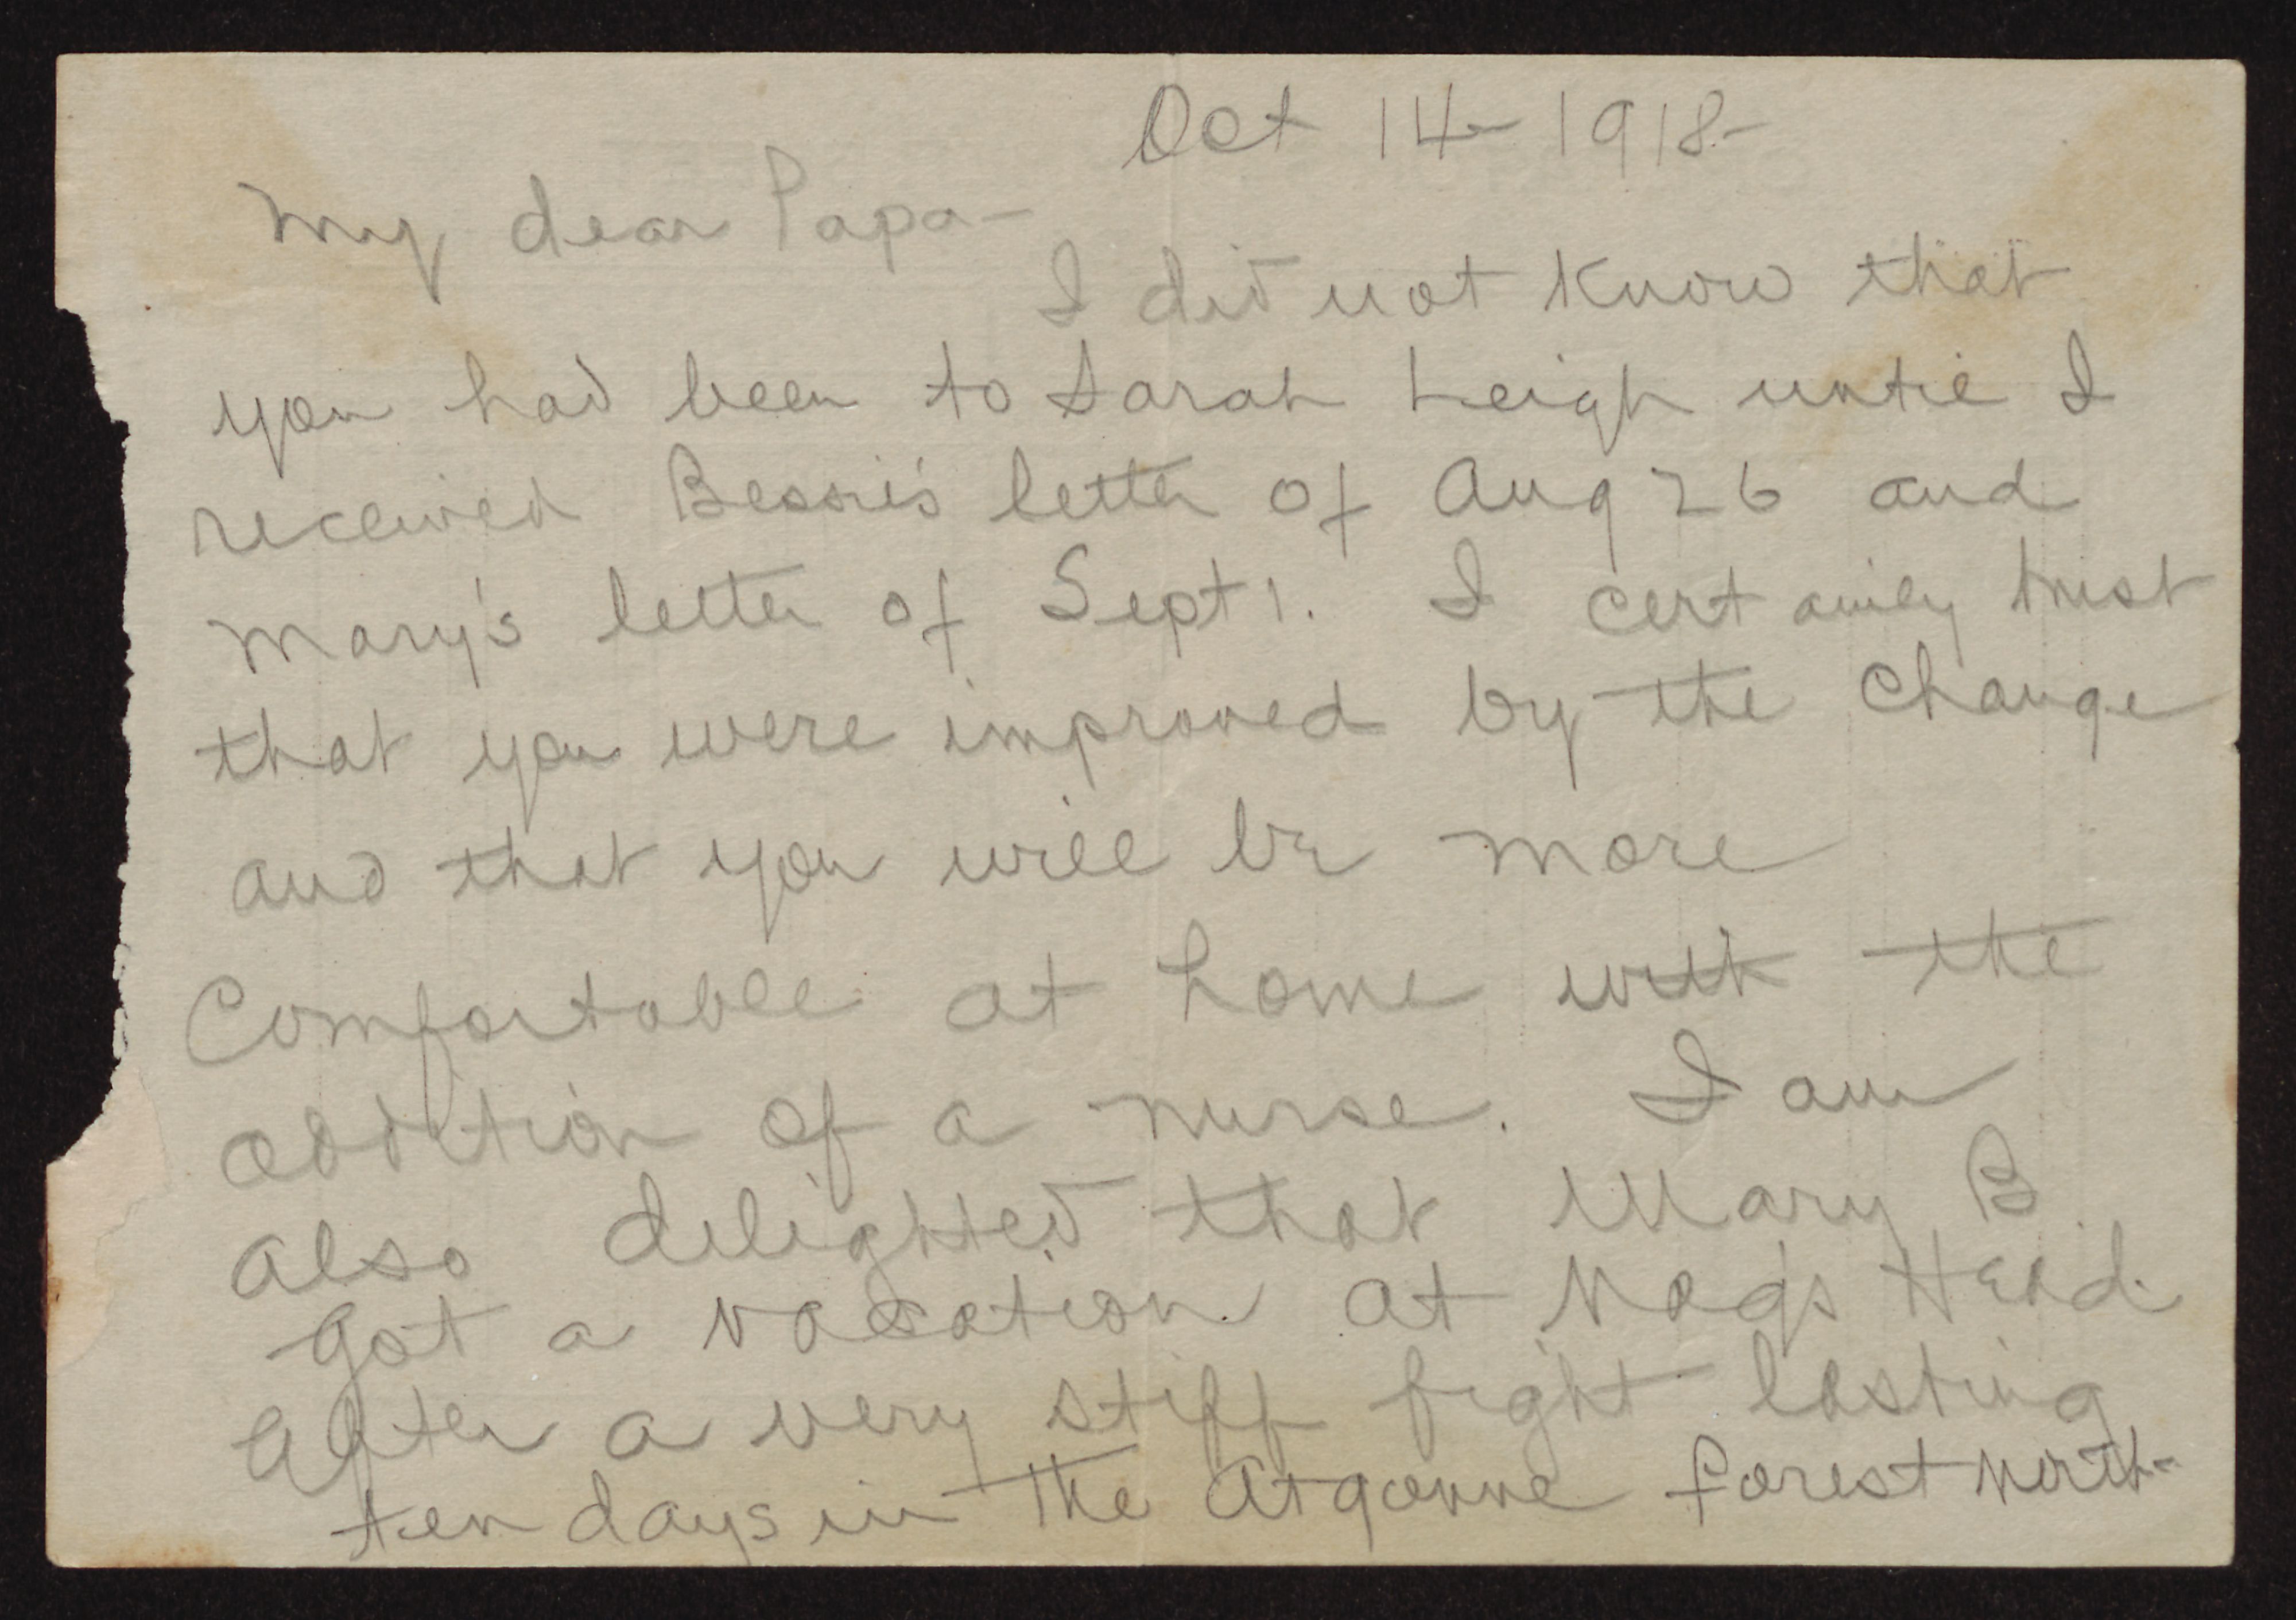 Oct 14 - 1918 -
My dear Papa -
I did not know that
you had been to Sarah Leigh until I
received Bessie's letter of Aug 26 and
Mary's letter of Sept 1. I certainly trust
that you were improved by the change
and that you will be more
Comfortable at home with the
addition of a nurse. I am
also delighted that Mary B
got a vacation at Nags Head.
After a very stiff fight lasting
ten days in the Argonne forest north-